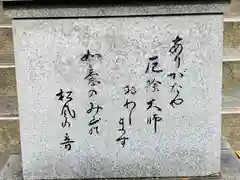 ありがたや
厄除大師
おわします
如意のみ山の
松風の音